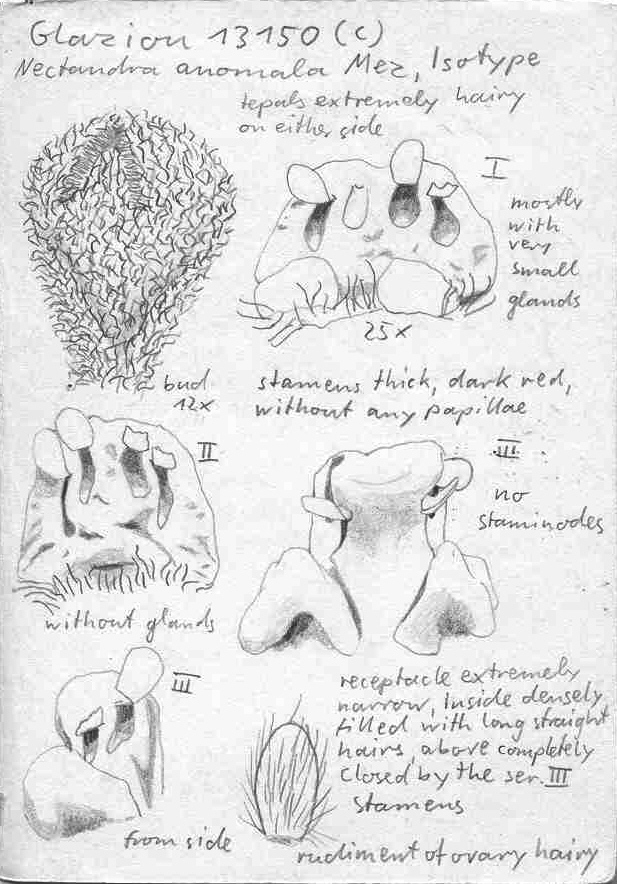 Glaziou 13150 (C)
Nectandra anomala Mez, Isotype
tepals extremely hairy
on either side
I
mostly
with
very
small
glands
25x
bud
12x
stamens thick, dark red,
without any papillae
II
III
no
staminodes
without glands
III
receptacle extremely
narrow, inside densely
filled with long straight
hairs, above completely
closed by the ser. III
stamens
from side
rudiment of ovary hairy